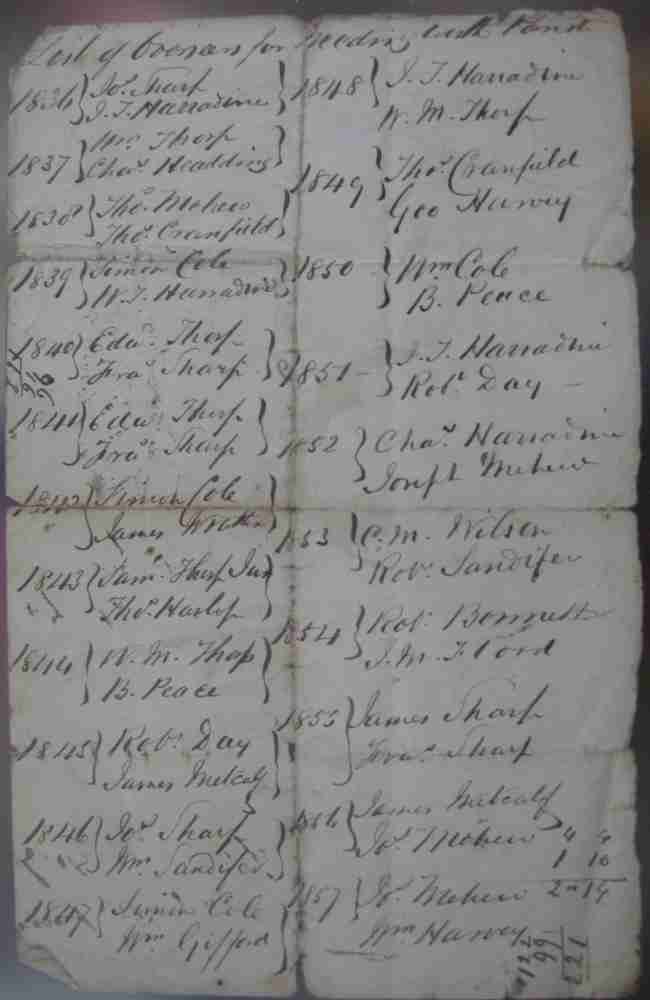 List of Overseers for with Parish
1836 Jos. Sharp
J. T. Harradine
Wm. Thorp
1837 Chas. Headding
1838 Thos. Mehew
Thos. Cranfield
1839 Simon Cole
W. T. Harradine
1840 Edwd. Thorp
Fras. Sharp
1841 Edwd. Thorp
Fras. Sharp
1842 Simon Cole
James
1843 Saml. Thorp Jun
Thos. Haslop
1844 W. M. Thorp
B. Peace
1845 Robt. Day
James Metcalf
1846 Jos. Sharp
Wm. Sandifer
1847 Simon Cole
Wm. Gifford
1848 J. T. Harradine
W. M. Thorp
1849 Thos. Cranfield
Geo Harvey
1850 Wm Cole
B. Peace
1851 J. T. Harradine
Robt. Day
1852 Chas. Harradine
Joseph Mehew
1853 C. M. Wilson
Robt. Sandifer
1854 Robt. Bonnett
J. M. Ford
1855 James Sharp
Fras. Sharp
1856 James Metcalf
Jos. Mehew
1 10
2 " 14
1857 Jos. Mehew
Wm Harvey
96
221